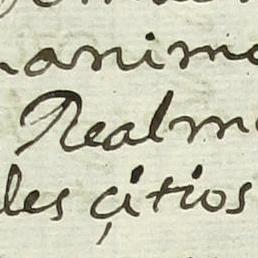 animo
Realm
les çitios